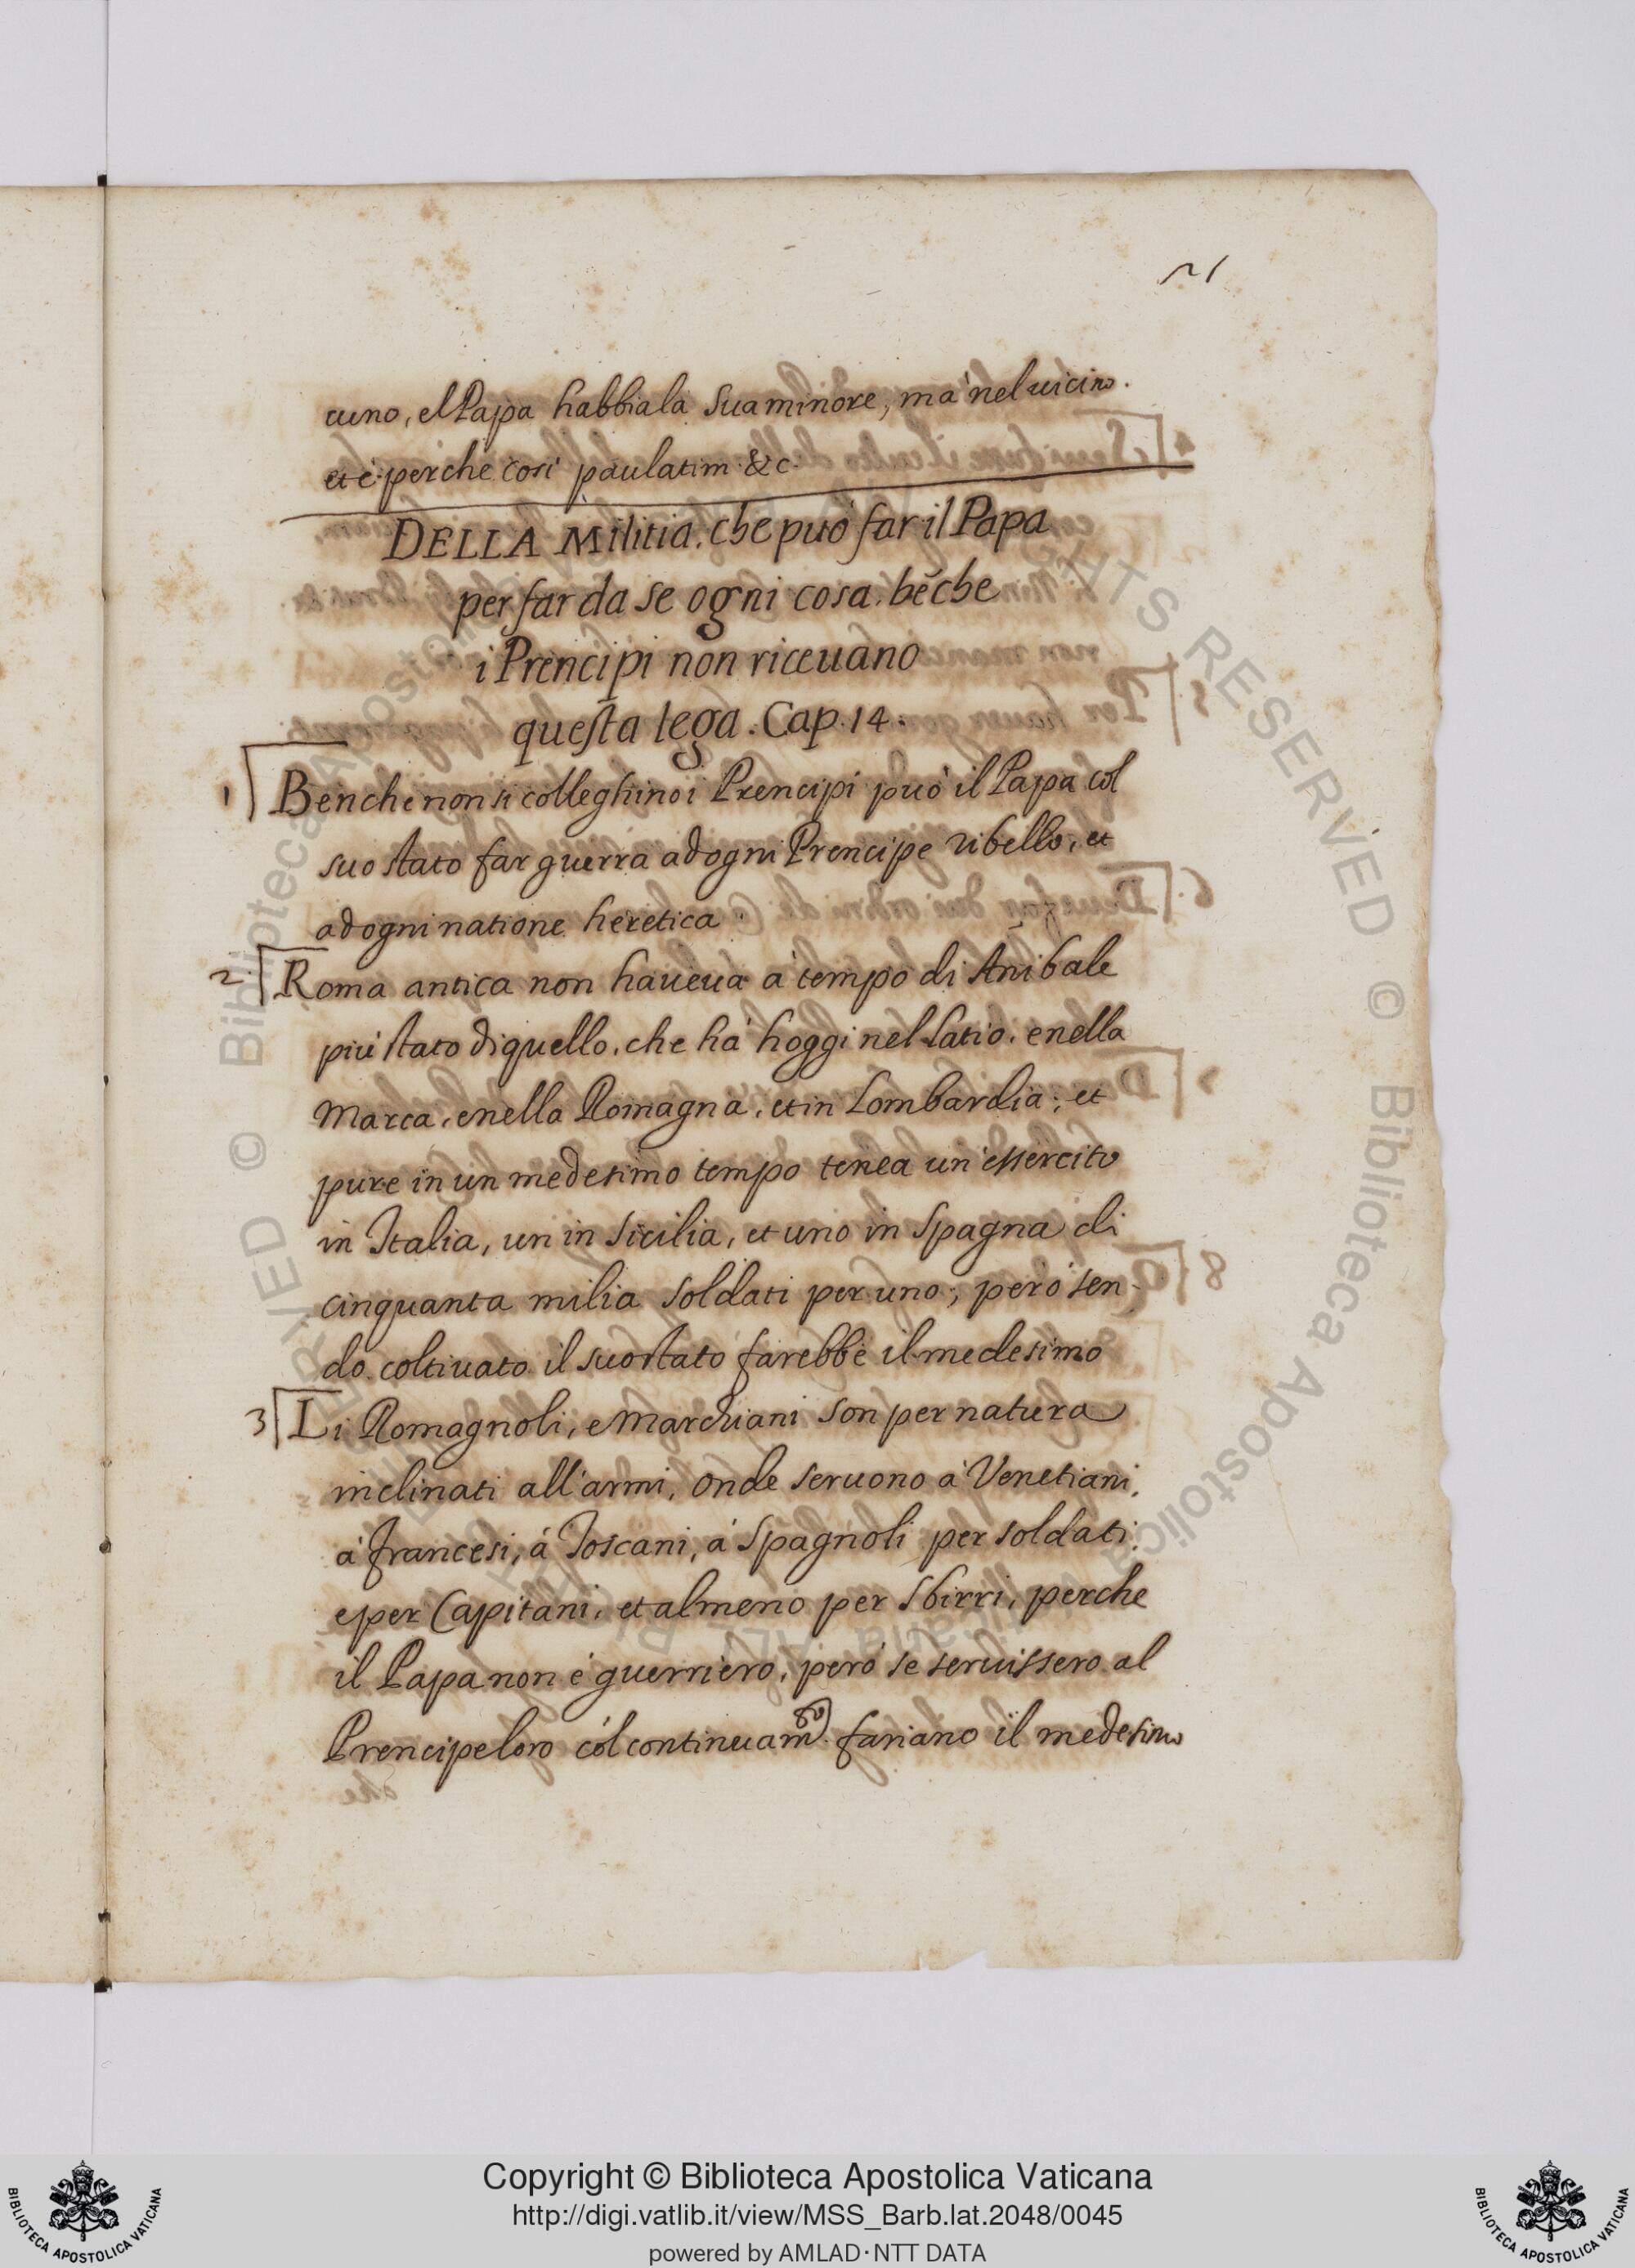 21
cuno, el Papa habbia la sua minore, mà nel uicino.
et è perche così paulatim &c.
DELLA Militia, che può far il Papa
per far da se ogni cosa, bẽche
i Prencipi non riceuano
questa lega. Cap. 14.
1 Benche non si colleghino i Prencipi può il Papa col
suo stato far guerra ad ogni Prencipe ribello, et
ad ogni natione heretica.
2. Roma antica non haueua à tempo di Anibale
più stato di quello, che hà hoggi nel Latio, e nella
Marca, e nella Romagna, et in Lombardia; et
pure in un medesimo tempo tenea un'essercito
in Italia, un in Sicilia, et uno in Spagna di
cinquanta milia soldati per uno; però sen-
do coltiuato il suo stato farebbe il medesimo
3 Li Romagnoli, e Marchiani son per natura
inclinati all'armi, onde seruono à Venetiani,
à francesi, à Toscani, à Spagnoli per soldati,
e per Capitani, et almeno per Sbirri, perche
il Papa non è guerriero, però se seruissero al
Prencipe loro col continuam.to fariano il medesimo
che
Copyright © Biblioteca Apostolica Vaticana
http://digi.vatlib.it/view/MSS_Barb.lat.2048/0045
powered by AMLAD·NTT DATA
BIBLIOTECA APOSTOLICA VATICANA
BIBLIOTECA APOSTOLICA VATICANA